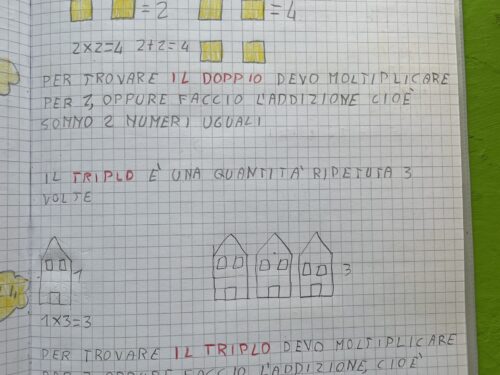 = 2 = 4
2×2=4 2+2=4
PER TROVARE IL DOPPIO DEVO MOLTIPLICARE
PER 2, OPPURE FACCIO L'ADDIZIONE CIOÈ
SOMMO 2 NUMERI UGUALI
IL TRIPLO È UNA QUANTITÀ RIPETUTA 3
VOLTE
1 3
1×3=3
PER TROVARE IL TRIPLO DEVO MOLTIPLICARE
PER 3 OPPURE FACCIO L'ADDIZIONE, CIOÈ